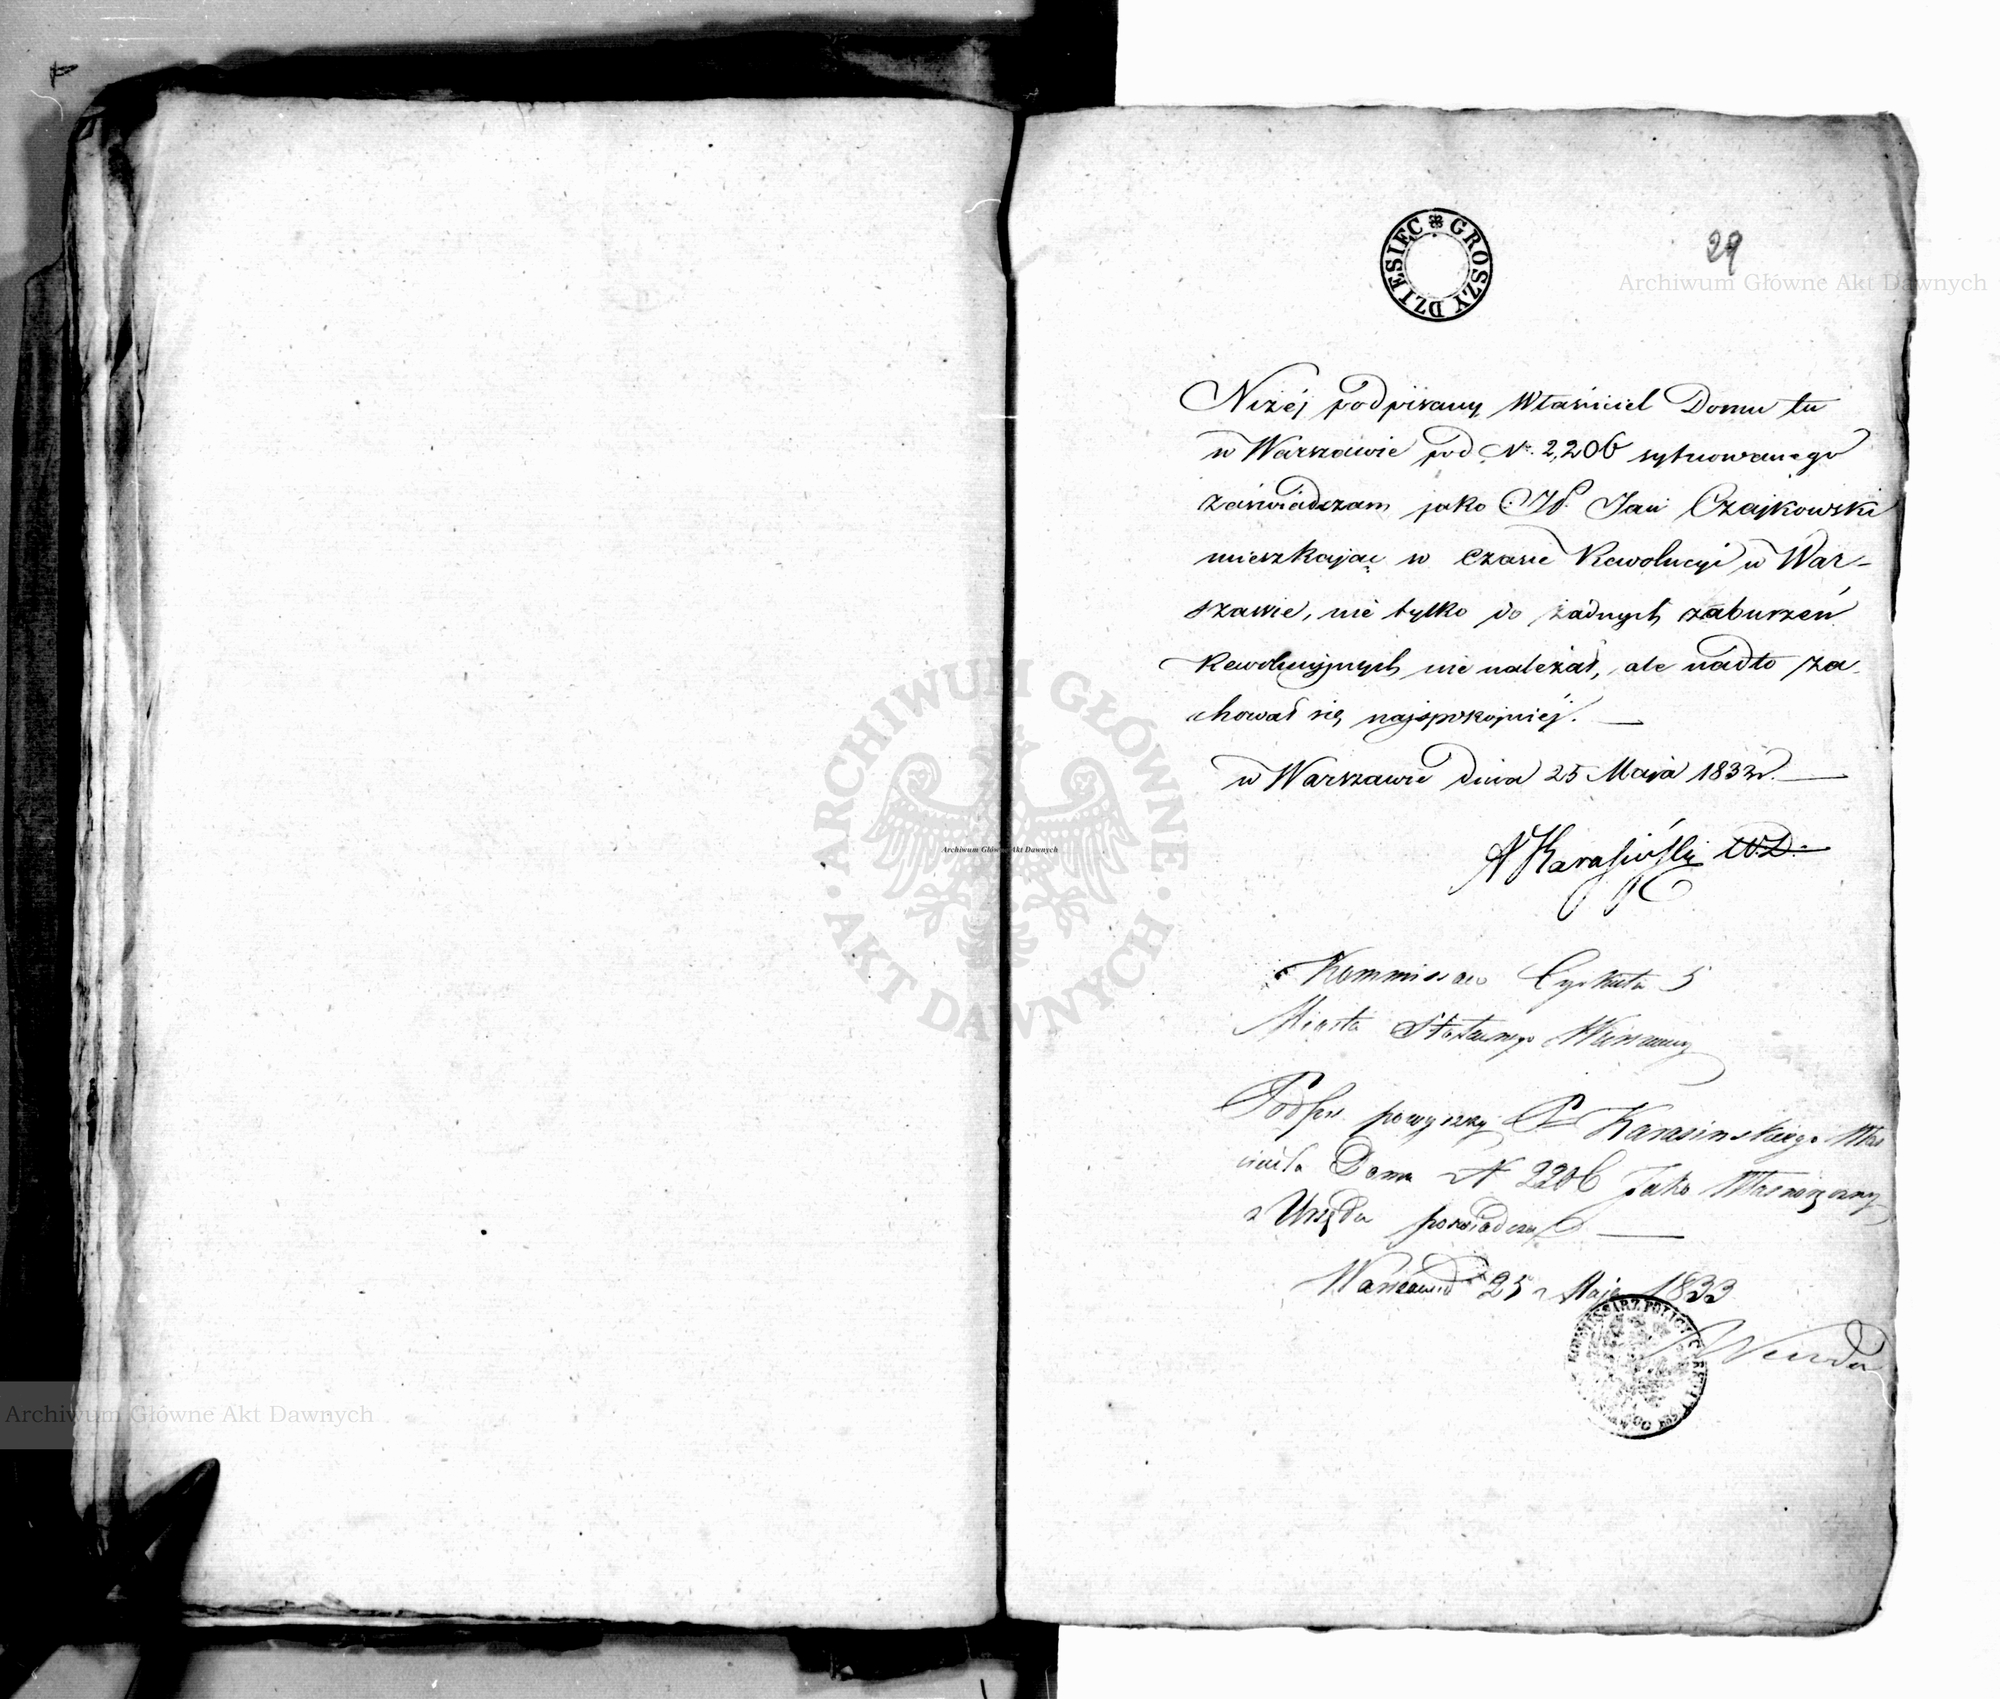 GROSZY DZIESIĘC
29
Archiwum Główne Akt Dawnych
Niżéj podpisany Właściciel Domu tu
w Warszawie pod Nr. 2,206 sytuowanego
zaświadczam jako Jan Czajkowski
mieszkając w czasie Rewolucyi w War-
szawie, nie tylko do żadnych zaburzeń
Rewolucyjnych nie należał, ale nadto za-
chował się najspokojniéj.
w Warszawie dnia 25 Maja 1833 r.
A Karasiński W.D.
Kommissarz Cyrkułu 5
Miasta Stołecznego Warszawy
Podpis powyższy P. Karasinskiego Właś
ciciela Domu N 2206 jako Własnoręczny
z Urzędu poswiadcza
Warszawa d 25 Maja 1833
Wenda
ARCHIWUM GŁÓWNE · AKT DAWNYCH ·
Archiwum Główne Akt Dawnych
Archiwum Główne Akt Dawnych